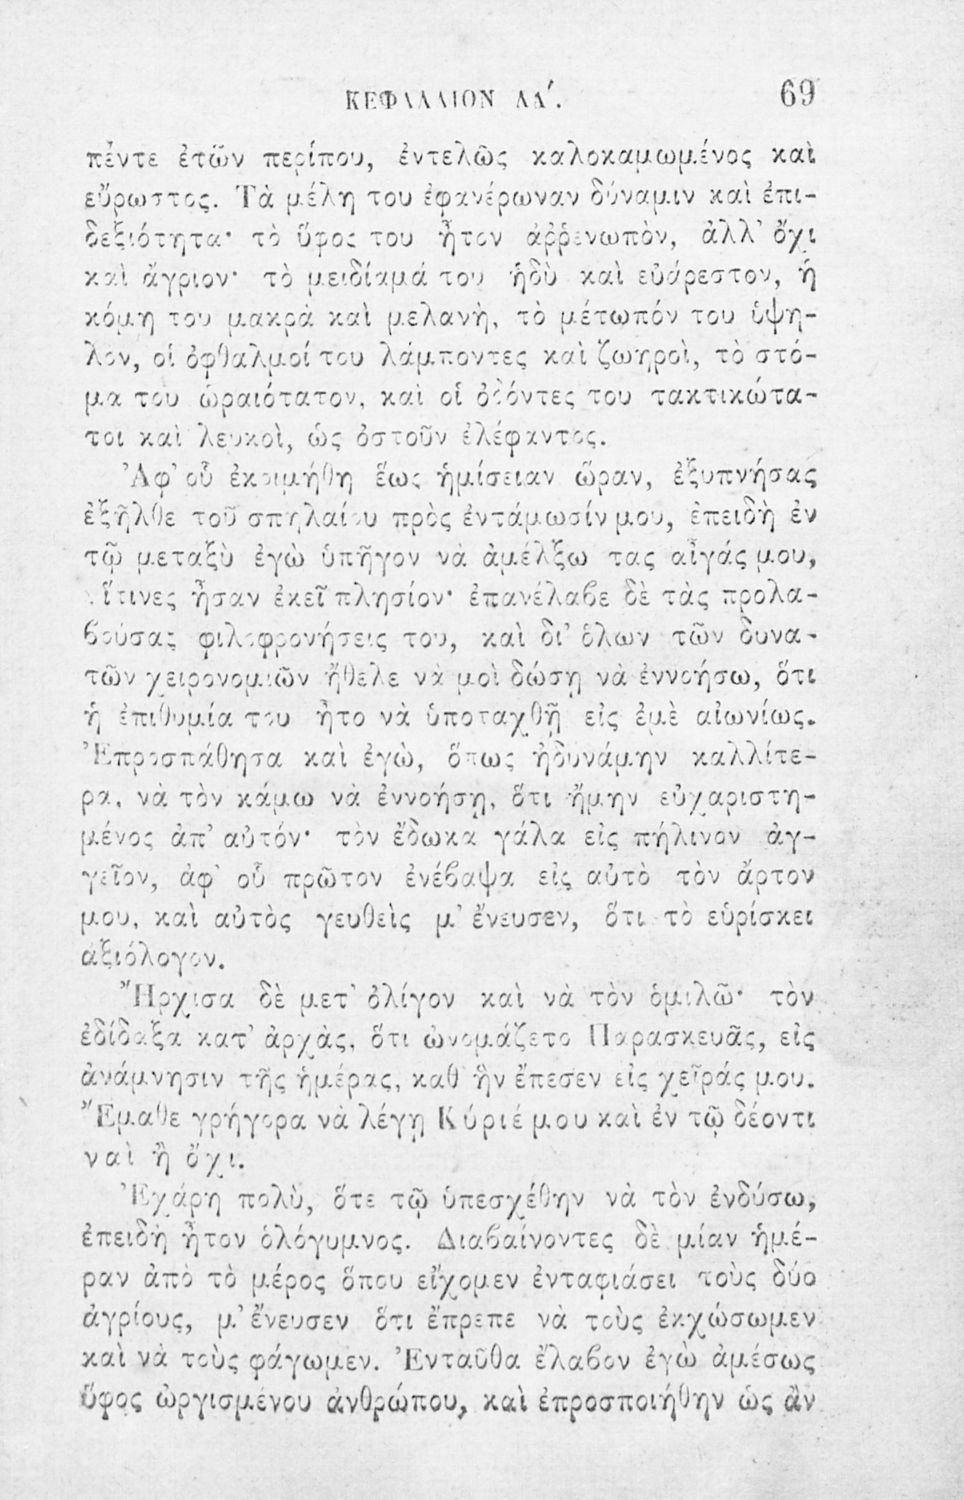 ΚΕΦΑΛΑΙΟΝ ΛΑ΄. 69
πέντε ἐτῶν περίπου, ἐντελῶς καλοκαμωμένος καὶ
εὔρωστος. Τὰ μέλη του ἐφανέρωναν δύναμιν καὶ ἐπι-
δεξιότητα· τὸ ὕφος του ἦτον ἀῤῥενωπὸν, ἀλλ' ὄχι
καὶ ἄγριον· τὸ μειδίαμά του ἡδὺ καὶ εὐάρεστον, ἡ
κόμη του μακρὰ καὶ μελανὴ, τὸ μέτωπόν του ὑψη-
λὸν, οἱ ὀφθαλμοί του λάμποντες καὶ ζωηροὶ, τὸ στό-
μα του ὡραιότατον, καὶ οἱ ὀδόντες του τακτικώτα-
τοι καὶ λευκοὶ, ὡς ὀστοῦν ἐλέφαντος.
Ἀφ' οὗ ἐκοιμήθη ἕως ἡμίσειαν ὥραν, ἐξυπνήσας
ἐξῆλθε τοῦ σπηλαίου πρὸς ἐντάμωσίν μου, ἐπειδὴ ἐν
τῷ μεταξὺ ἐγὼ ὑπῆγον νὰ ἀμέλξω τας αἶγάς μου,
αἵτινες ἦσαν ἐκεῖ πλησίον· ἐπανέλαβε δὲ τὰς προλα-
βούσας φιλοφρονήσεις του, καὶ δι' ὅλων τῶν δυνα-
τῶν χειρονομιῶν ἤθελε νὰ μοὶ δώσῃ νὰ ἐννοήσω, ὅτι
ἡ ἐπιθυμία του ἦτο νὰ ὑποταχθῇ εἰς ἐμὲ αἰωνίως.
Ἐπροσπάθησα καὶ ἐγὼ, ὅπως ἠδυνάμην καλλίτε-
ρα, νὰ τὸν κάμω νὰ ἐννοήσῃ, ὅτι ἤμην εὐχαριστη-
μένος ἀπ' αὐτόν· τὸν ἔδωκα γάλα εἰς πήλινον ἀγ-
γεῖον, ἀφ' οὗ πρῶτον ἐνέβαψα εἰς αὐτὸ τὸν ἄρτον
μου, καὶ αὐτὸς γευθεὶς μ' ἔνευσεν, ὅτι τὸ εὑρίσκει
ἀξιόλογον.
Ἤρχισα δὲ μετ' ὀλίγον καὶ νὰ τὸν ὁμιλῶ· τὸν
ἐδίδαξα κατ' ἀρχὰς, ὅτι ὠνομάζετο Παρασκευᾶς, εἰς
ἀνάμνησιν τῆς ἡμέρας, καθ' ἣν ἔπεσεν εἰς χεῖράς μου.
Ἔμαθε γρήγορα νὰ λέγῃ Κύριέ μου καὶ ἐν τῷ δέοντι
ναὶ ἢ ὄχι.
Ἐχάρη πολὺ, ὅτε τῷ ὑπεσχέθην νὰ τὸν ἐνδύσω,
ἐπειδὴ ἦτον ὁλόγυμνος. Διαβαίνοντες δὲ μίαν ἡμέ-
ραν ἀπὸ τὸ μέρος ὅπου εἴχομεν ἐνταφιάσει τοὺς δύο
ἀγρίους, μ' ἔνευσεν ὅτι ἔπρεπε νὰ τοὺς ἐκχώσωμεν
καὶ νὰ τοὺς φάγωμεν. Ἐνταῦθα ἔλαβον ἐγὼ ἀμέσως
ὕφος ὠργισμένου ἀνθρώπου, καὶ ἐπροσποιήθην ὡς ἂν